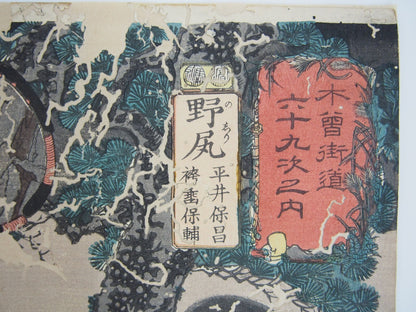 木曽街道
六十九次之内
野尻
のじり
平井保昌
袴垂保輔